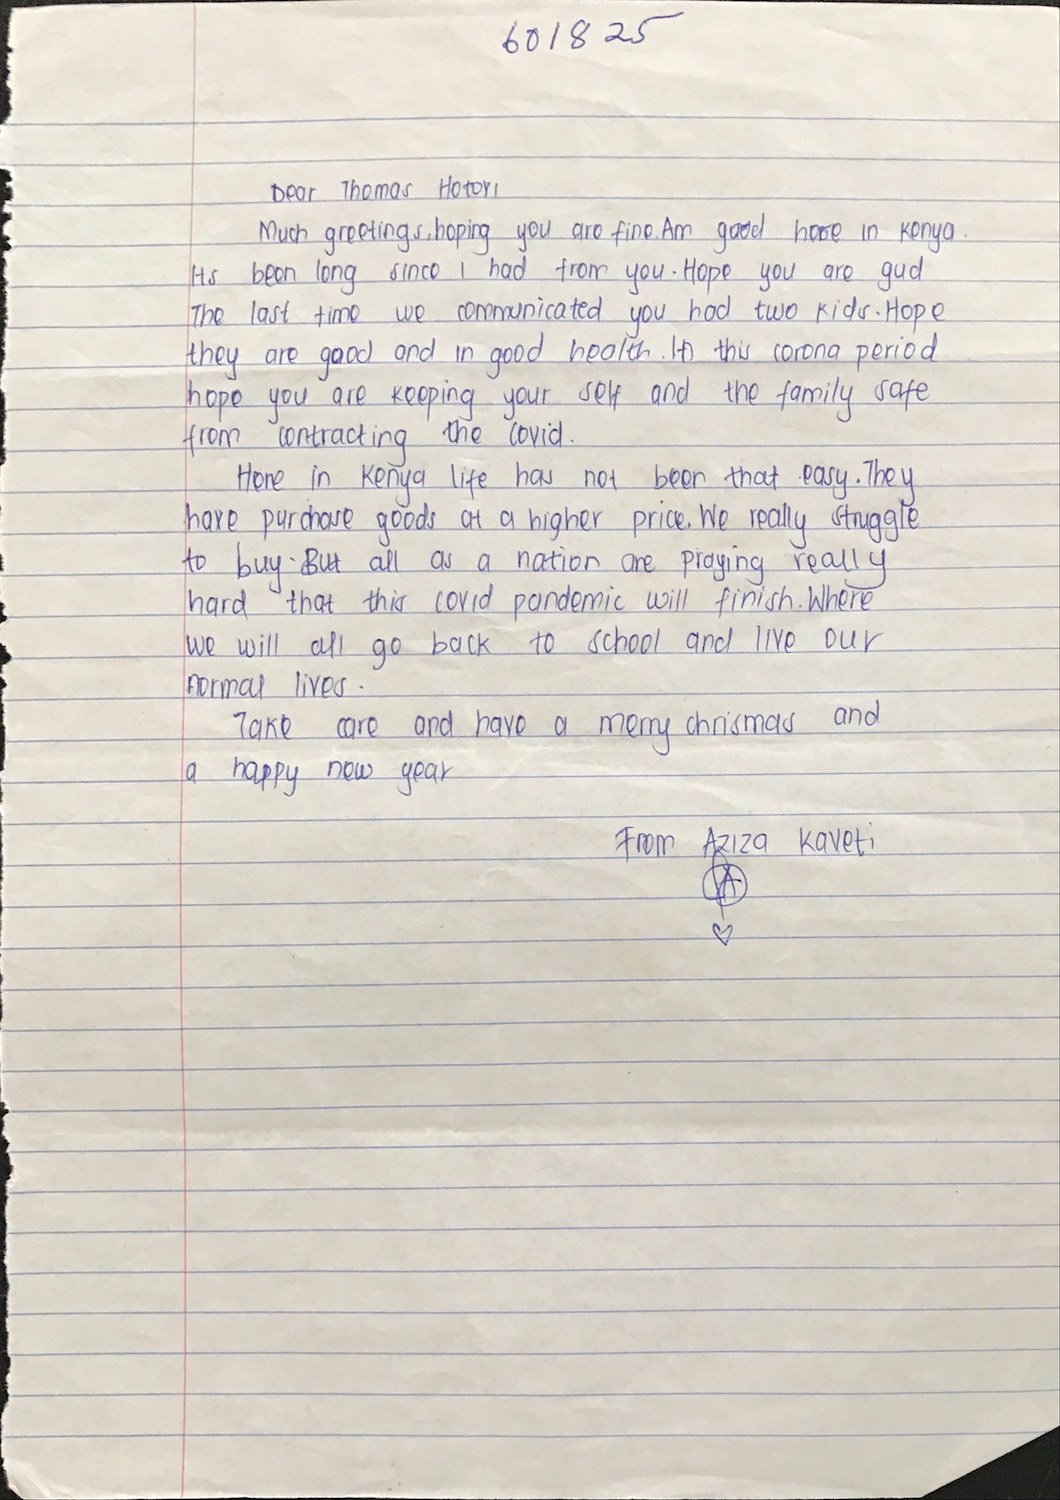 601825
Dear Thomas Hatori
Much greetings, hoping you are fine. Am good here in Kenya.
Its been long since I had from you. Hope you are gud
The last time we communicated you had two kids. Hope
they are good and in good health. In this corona period
hope you are keeping your self and the family safe
from contracting the covid.
Here in Kenya life has not been that easy. They
have purchase goods at a higher price. We really struggle
to buy. But all as a nation are praying really
hard that this covid pandemic will finish. Where
we will all go back to school and live our
normal lives.
Take care and have a merry chrismas and
a happy new year
From Aziza Kaveti
A